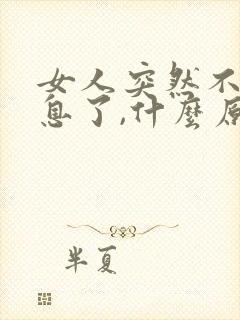 女人突然不
息了,什麽原
半夏